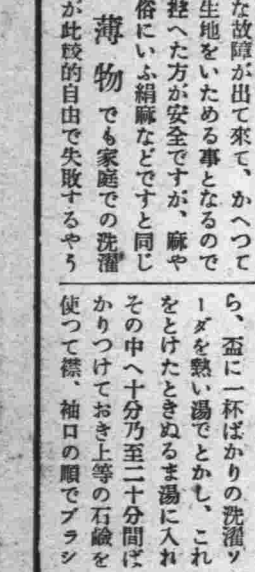 な故障が出て来て、かへつて
生地をいためる事となるので
控へた方が安全ですが、麻や
俗にいふ絹麻などですと同じ
薄物 でも家庭での洗濯
が此較的自由で失敗するやう
ら、盃に一杯ばかりの洗濯ソ
ーダを熱い湯でとかし、これ
をとけたときぬるま湯に入れ
その中へ十分乃至二十分間ば
かりつけておき上等の石鹼を
使つて襟、袖口の順でブラシ